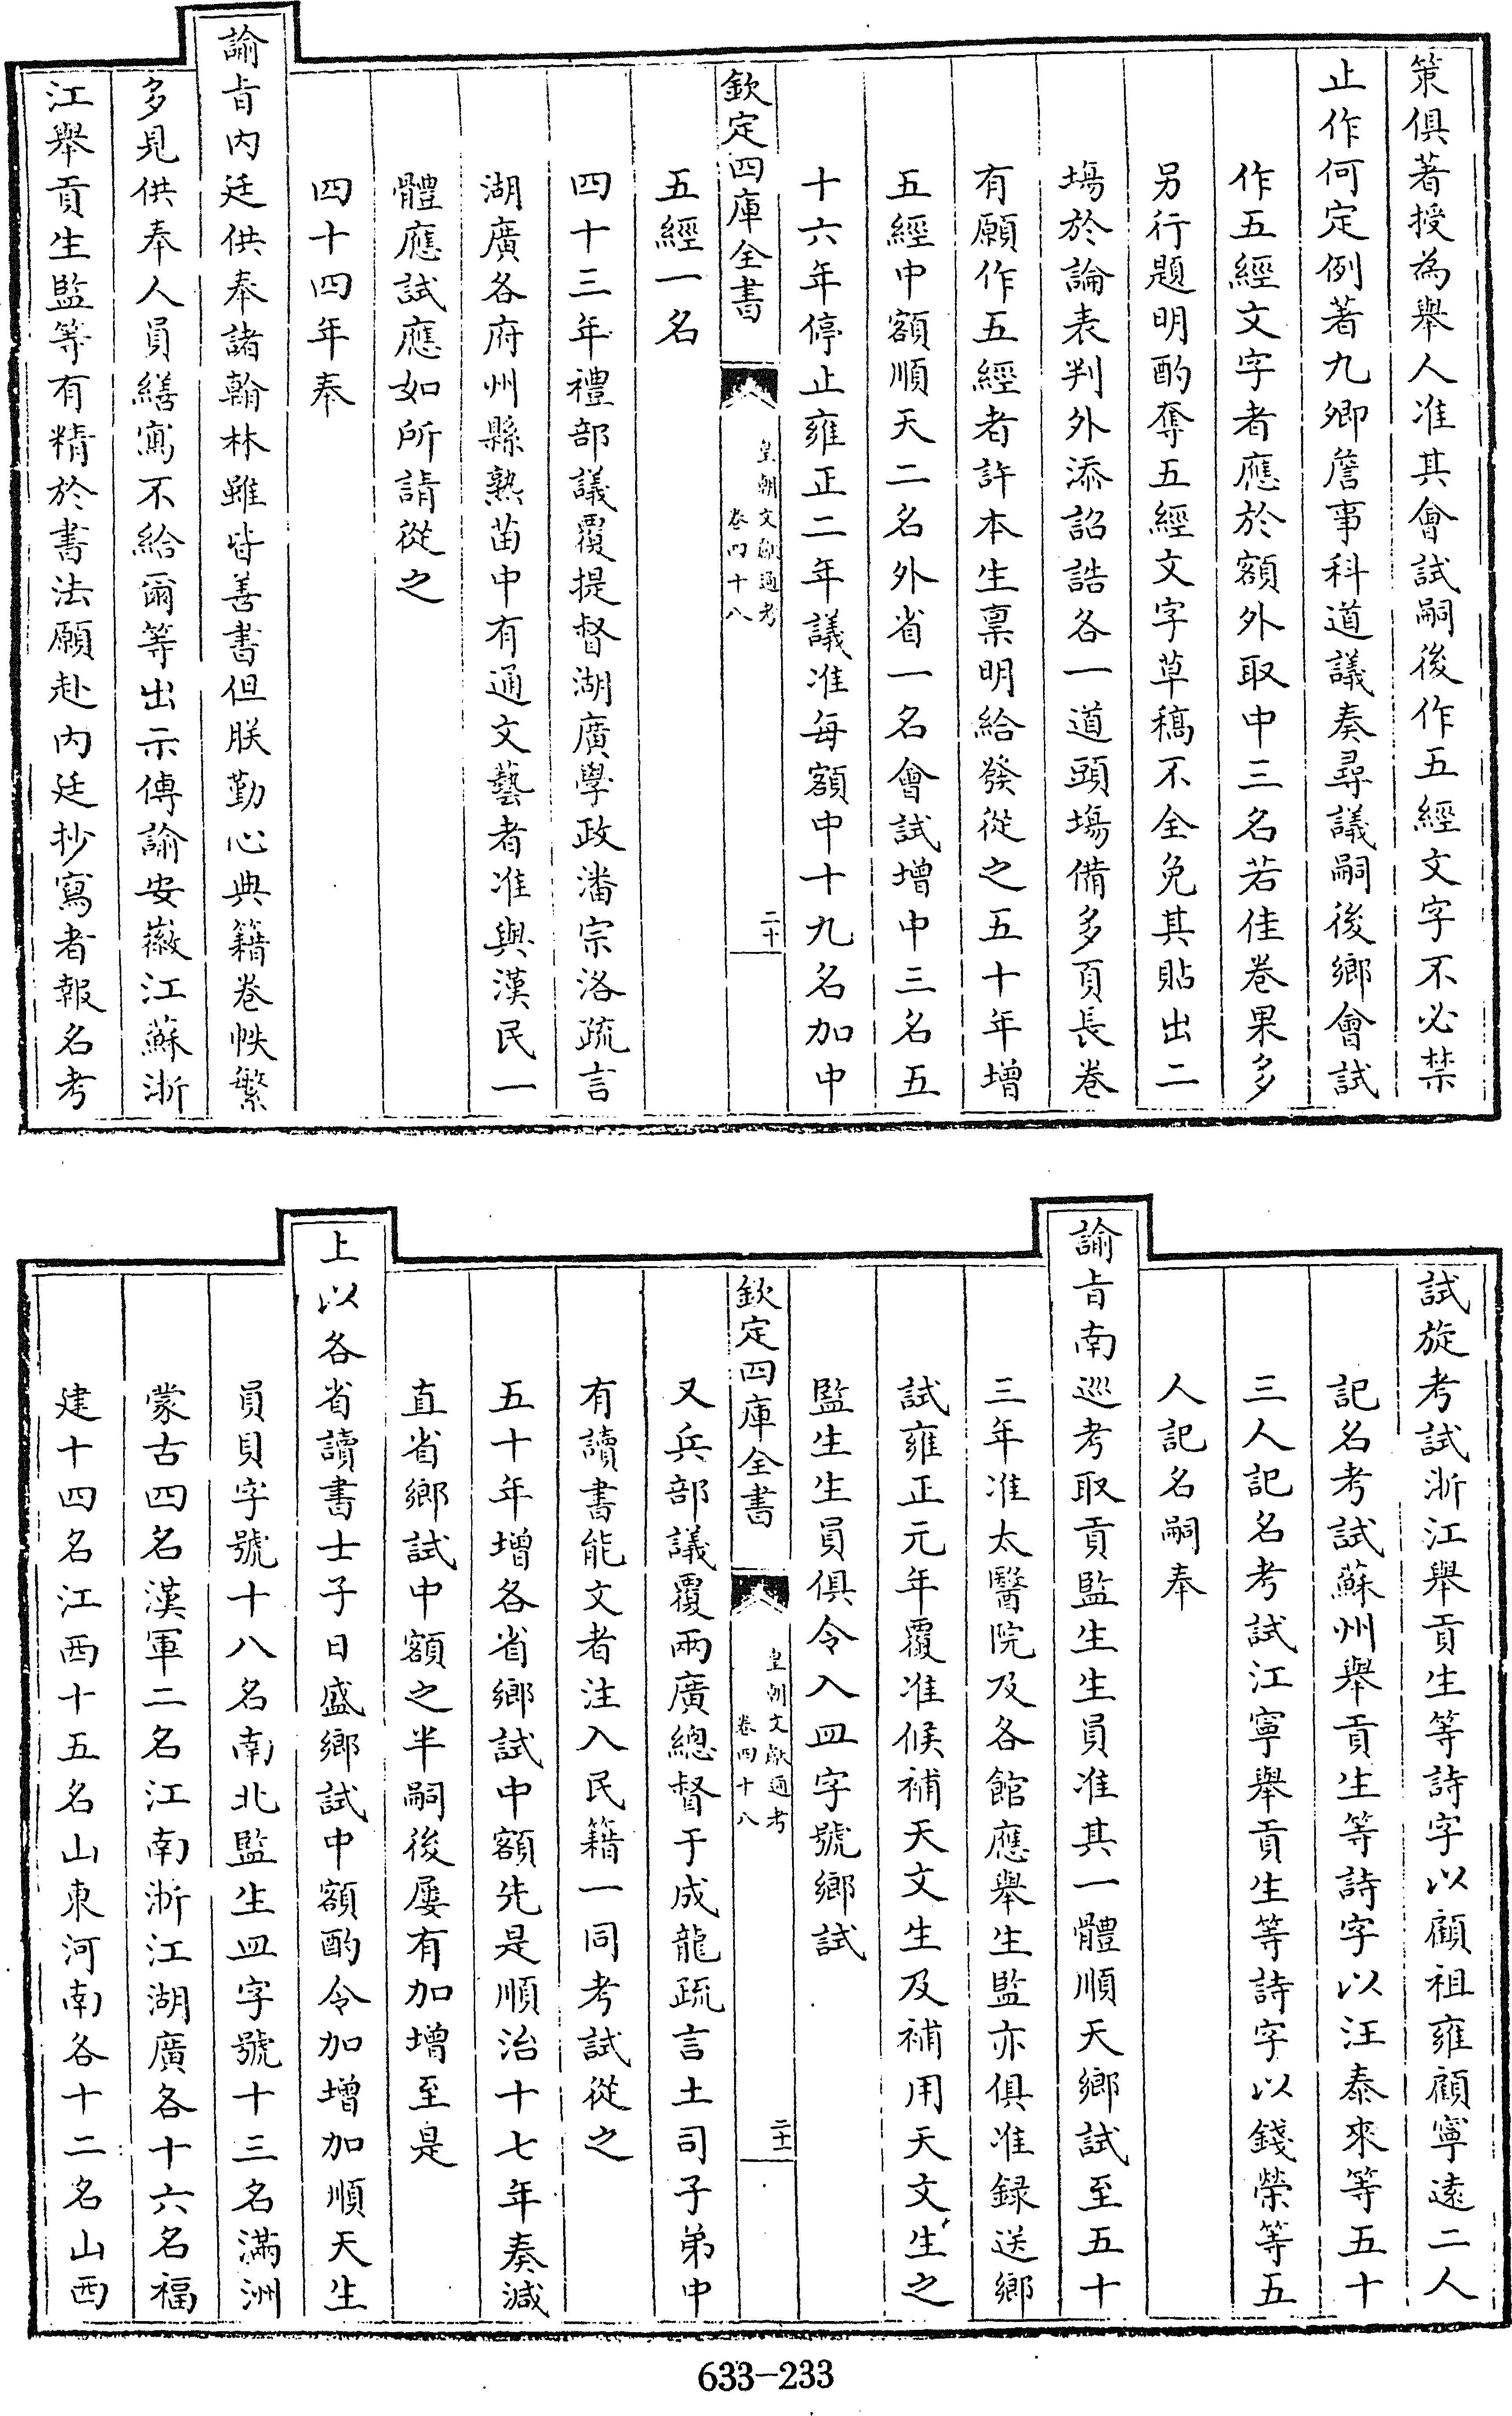 策俱著授為舉人准其會試嗣後作五經文字不必禁
止作何定例著九卿詹事科道議奏尋議嗣後鄉會試
作五經文字者應於額外取中三名若佳卷果多
另行題明酌奪五經文字草稿不全免其貼出二
塲於論表判外添詔誥各一道頭塲備多頁長卷
有願作五經者許本生稟明給發從之五十年增
五經中額順天二名外省一名會試增中三名五
十六年停止雍正二年議准每額中十九名加中
欽定四庫全書
皇朝文獻通考
卷四十八
二十
五經一名
四十三年禮部議覆提督湖廣學政潘宗洛疏言
湖廣各府州縣熟苗中有通文藝者准與漢民一
體應試應如所請從之
四十四年奉
諭旨內廷供奉諸翰林雖皆善書但朕勤心典籍卷帙繁
多見供奉人員繕寫不給爾等出示傳諭安徽江蘇浙
江舉貢生監等有精於書法願赴內廷抄寫者報名考
試旋考試浙江舉貢生等詩字以顧祖雍顧寧遠二人
記名考試蘇州舉貢生等詩字以汪泰來等五十
三人記名考試江寧舉貢生等詩字以錢榮等五
人記名嗣奉
諭旨南巡考取貢監生生員准其一體順天鄉試至五十
三年准太醫院及各館應舉生監亦俱准録送鄉
試雍正元年覆准候補天文生及補用天文生之
監生生員俱令入皿字號鄉試
欽定四庫全書
皇朝文獻通考
卷四十八
二十一
又兵部議覆兩廣總督于成龍疏言土司子弟中
有讀書能文者注入民籍一同考試從之
五十年增各省鄉試中額先是順治十七年奏減
直省鄉試中額之半嗣後屢有加增至是
上以各省讀書士子日盛鄉試中額酌令加增加順天生
員貝字號十八名南北監生皿字號十三名滿洲
蒙古四名漢軍二名江南浙江湖廣各十六名福
建十四名江西十五名山東河南各十二名山西
633-233